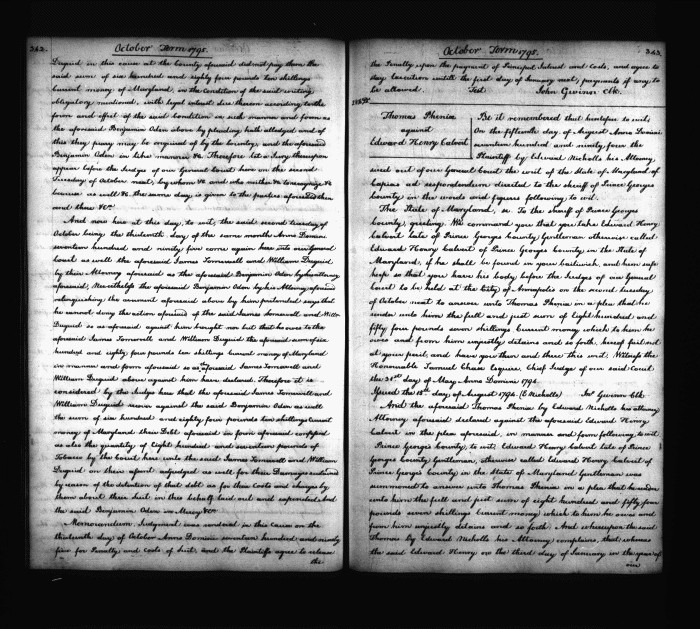 242.
October Term 1795.
Duguid in this cause at the County aforesaid did not pay them the
said sum of six hundred and eighty four pounds ten shillings
current money of Maryland, in the Condition of the said writing
obligatory mentioned, with legal interest due thereon according to the
form and effect of the said Condition in such manner and form as
the aforesaid Benjamin Oden above by pleading hath alledged and of
this they pray may be enquired of by the Country, and the aforesaid
Benjamin Oden in like manner &c. Therefore let a Jury thereupon
appear before the Judges of our General Court here on the second
Tuesday of October next, by whom &c and who neither &c to recognize &c
because as well &c the same day is given to the parties aforesaid then
and there &c.
And now here at this day, to wit, the said second tuesday of
October being the thirteenth day of the same month Anno Domini
seventeen hundred and ninety five come again here into our General
Court as well the aforesaid James Somervell and William Duguid
by their Attorney aforesaid as the aforesaid Benjamin Oden by his attorney
aforesaid; Nevertheless the aforesaid Benjamin Oden by his Attorney aforesaid
relinquishing the averment aforesaid above by him pretended says that
he cannot deny the action aforesaid of the said James Somervell and Willm
Duguid so as aforesaid against him brought nor but that he owes to the
aforesaid James Somervell and William Duguid the aforesaid sum of six
hundred and eighty four pounds ten shillings current money of Maryland
in manner and form aforesaid as the aforesaid James Somervell and
William Duguid above against him have declared. Therefore it is
considered by the Judges here that the aforesaid James Somervell and
William Duguid recover against the said Benjamin Oden as well
the sum of six hundred and eighty four pounds ten shillings Current
money of Maryland their Debt aforesaid in form aforesaid confessed
as also the quantity of Eight hundred and seventeen pounds of
Tobacco by the Court here unto the said James Somervell and William
Duguid on their assent adjudged as well for their Damages sustained
by reason of the detention of that debt as for their Costs and charges by
them about their suit in this behalf laid out and expended And
the said Benjamin Oden in Mercy &c.
Memorandum. Judgment was rendered in this cause on the
thirteenth day of October Anno Domini seventeen hundred and ninety
five for Penalty and costs of Suit, and the Plaintiffs agree to release
the
October Term 1795.
243.
the Penalty upon the payment of Principal Interest and Costs, and agree to
stay Execution until the first day of January next, payments if any to
be allowed. Test John Gwinn Clk.
Thomas Phenix
against
Edward Henry Calvert
Be it remembered that heretofore to wit,
On the fifteenth day of August Anno Domini
seventeen hundred and ninety four the
Plaintiff by Edward Nicholls his Attorney,
sued out of our General Court the writ of the State of Maryland of
Capias ad respondendum directed to the sheriff of Prince Georges
County in the words and figures following, to wit.
The State of Maryland, ss. To the sheriff of Prince Georges
County, greeting. We command you that you take Edward Henry
Calvert late of Prince Georges County Gentleman otherwise called
Edward Henry Calvert of Prince Georges County in the State of
Maryland, if he shall be found in your bailiwick, and him safe
keep so that you have his body before the Judges of our General
Court to be held at the City of Annapolis on the second tuesday
of October next to answer unto Thomas Phenix in a plea that he
render unto him the full and just sum of Eight hundred and
fifty four pounds seven shillings Current money which to him he
owes and from him unjustly detains and so forth, hereof fail not
at your peril, and have you then and there this writ. Witness the
Honourable Samuel Chase Esquire, Chief Judge of our said Court
the 31st day of May Anno Domini 1794.
Issued the 15th day of August 1794. (E Nicholls) Jno Gwinn Clk
And the aforesaid Thomas Phenix by Edward Nicholls his attorney
Attorney aforesaid declared against the aforesaid Edward Henry
Calvert in the plea aforesaid, in manner and form following, to wit.
Prince Georges County, to wit: Edward Henry Calvert late of Prince
Georges County Gentleman, otherwise called Edward Henry Calvert of
Prince Georges County in the State of Maryland Gentleman was
summoned to answer unto Thomas Phenix in a plea that he render
unto him the full and just sum of eight hundred and fifty four
pounds seven shillings current money which to him he owes and
from him unjustly detains and so forth. And whereupon the said
Thomas by Edward Nicholls his Attorney complains, that whereas
the said Edward Henry on the third day of January in the year of
our